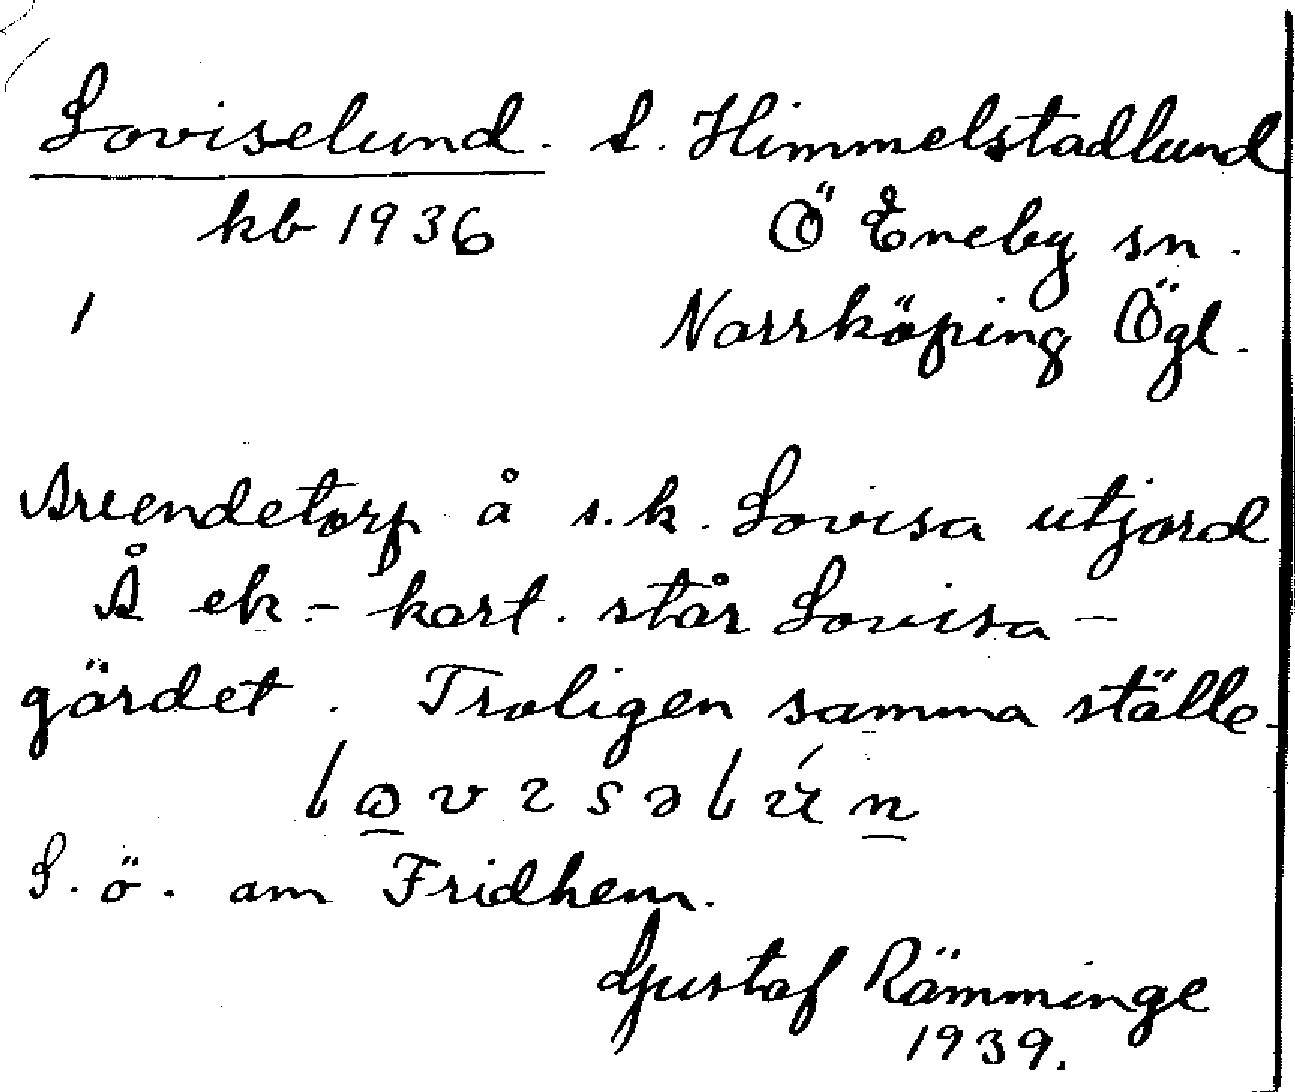 Loviselund. S. Himmelstadlund
kb 1936 Ö Eneby sn.
1 Norrköping Ögl.
Arrendetorp å s.k. Lovisa utjord
Å ek-kart. står Lovisa-
gärdet. Troligen samma ställe.
S. ö. om Fridhem.
Gustaf Rämminge
1939.